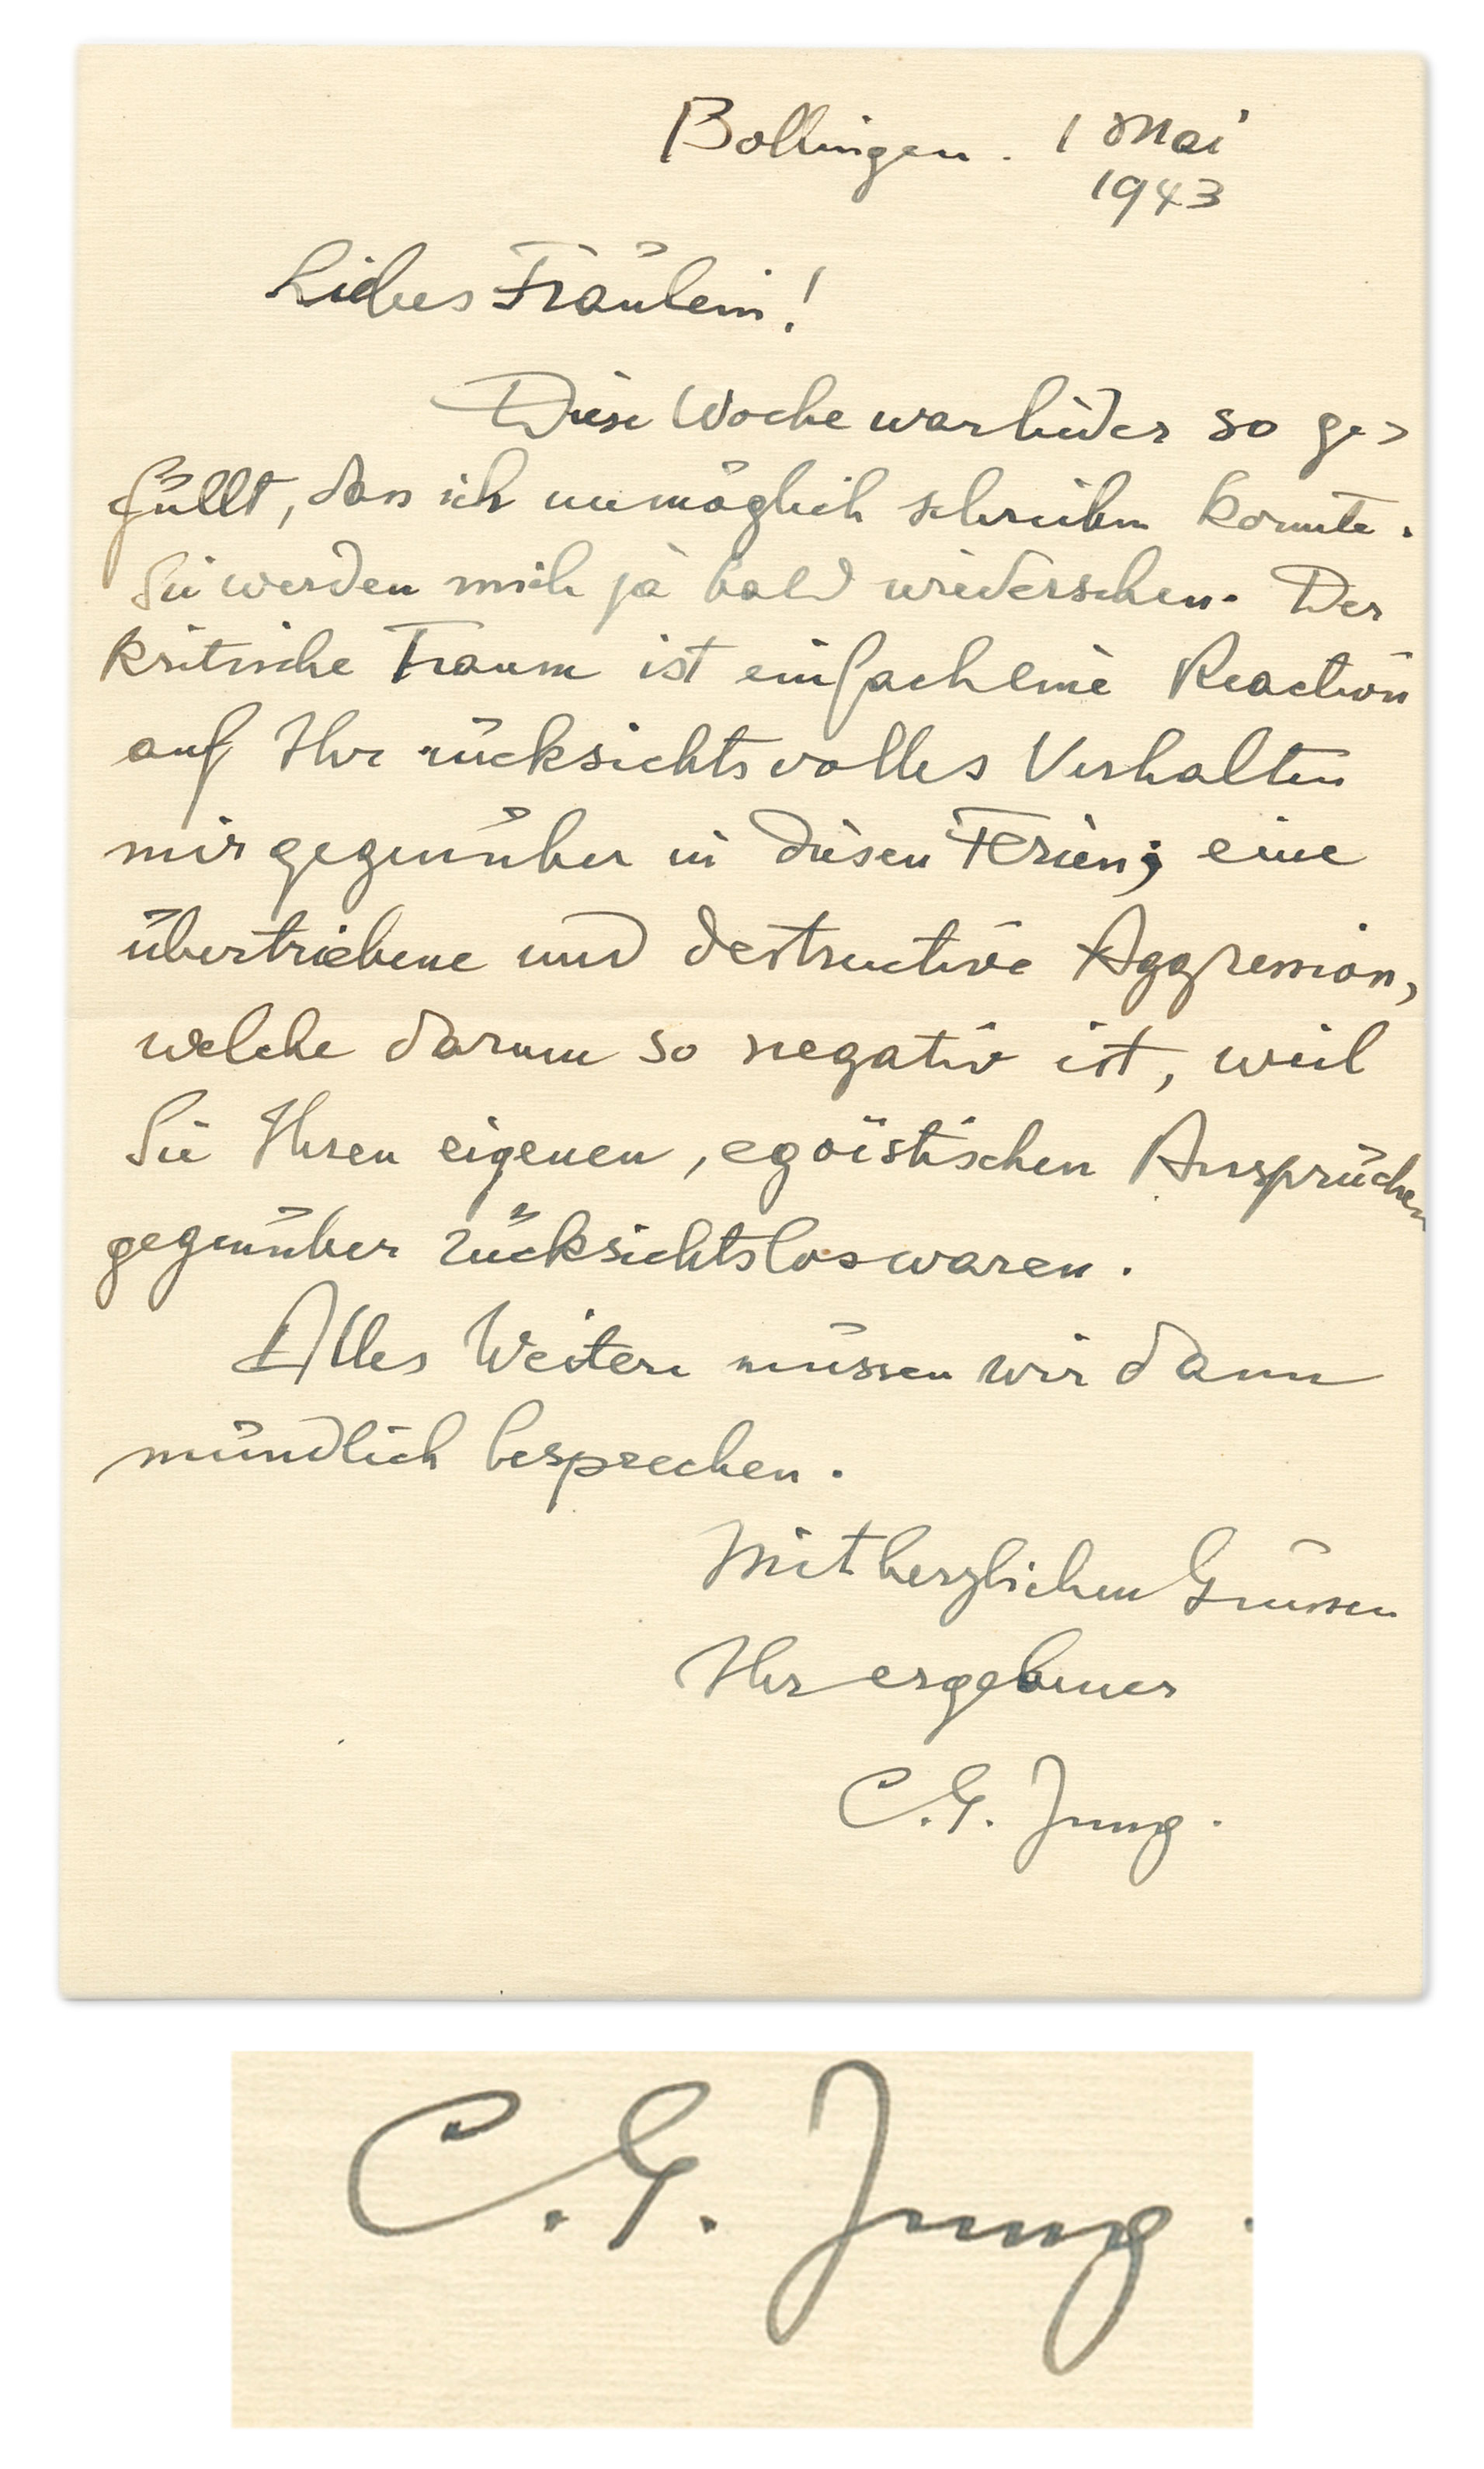 Bollingen. 1 Mai
1943
Liebes Fräulein!
Diese Woche war leider so ge-
füllt, dass ich unmöglich schreiben konnte.
Sie werden mich ja bald wiedersehen. Der
kritische Traum ist einfach eine Reaction
auf Ihr rücksichtsvolles Verhalten
mir gegenüber in diesen Ferien; eine
übertriebene und destructive Aggression,
welche darum so negativ ist, weil
Sie Ihren eigenen, egoïstischen Ansprüchen
gegenüber rücksichtslos waren.
Alles Weitere müssen wir dann
mündlich besprechen.
Mit herzlichen Grüssen
Ihr ergebener
C. G. Jung.
C. G. Jung.